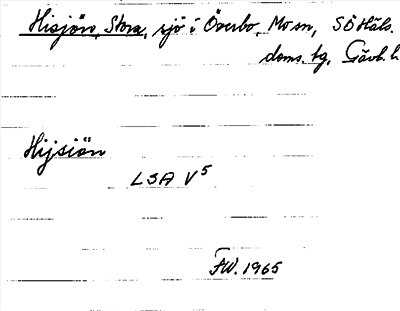 Hisjön, Stora, sjö i Överbo, Mo sn, SÖ Häls.
doms. tg, Gävb. l.
Hijsiön
LSA V5
FW. 1965